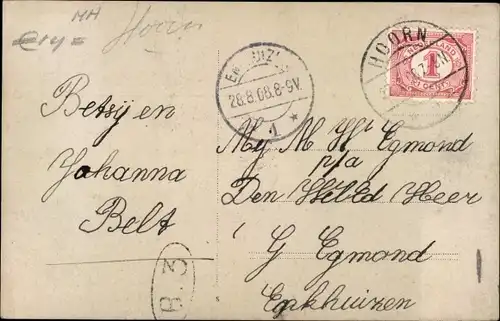 MH
Hoorn
Betsy en
Johanna
Belt
B. 3
28.8.08.8-9V.
1
HOORN
NEDERLAND
1
CENT
Mej M St Egmond
p/a
Den WelEd Heer
G Egmond
Enkhuizen